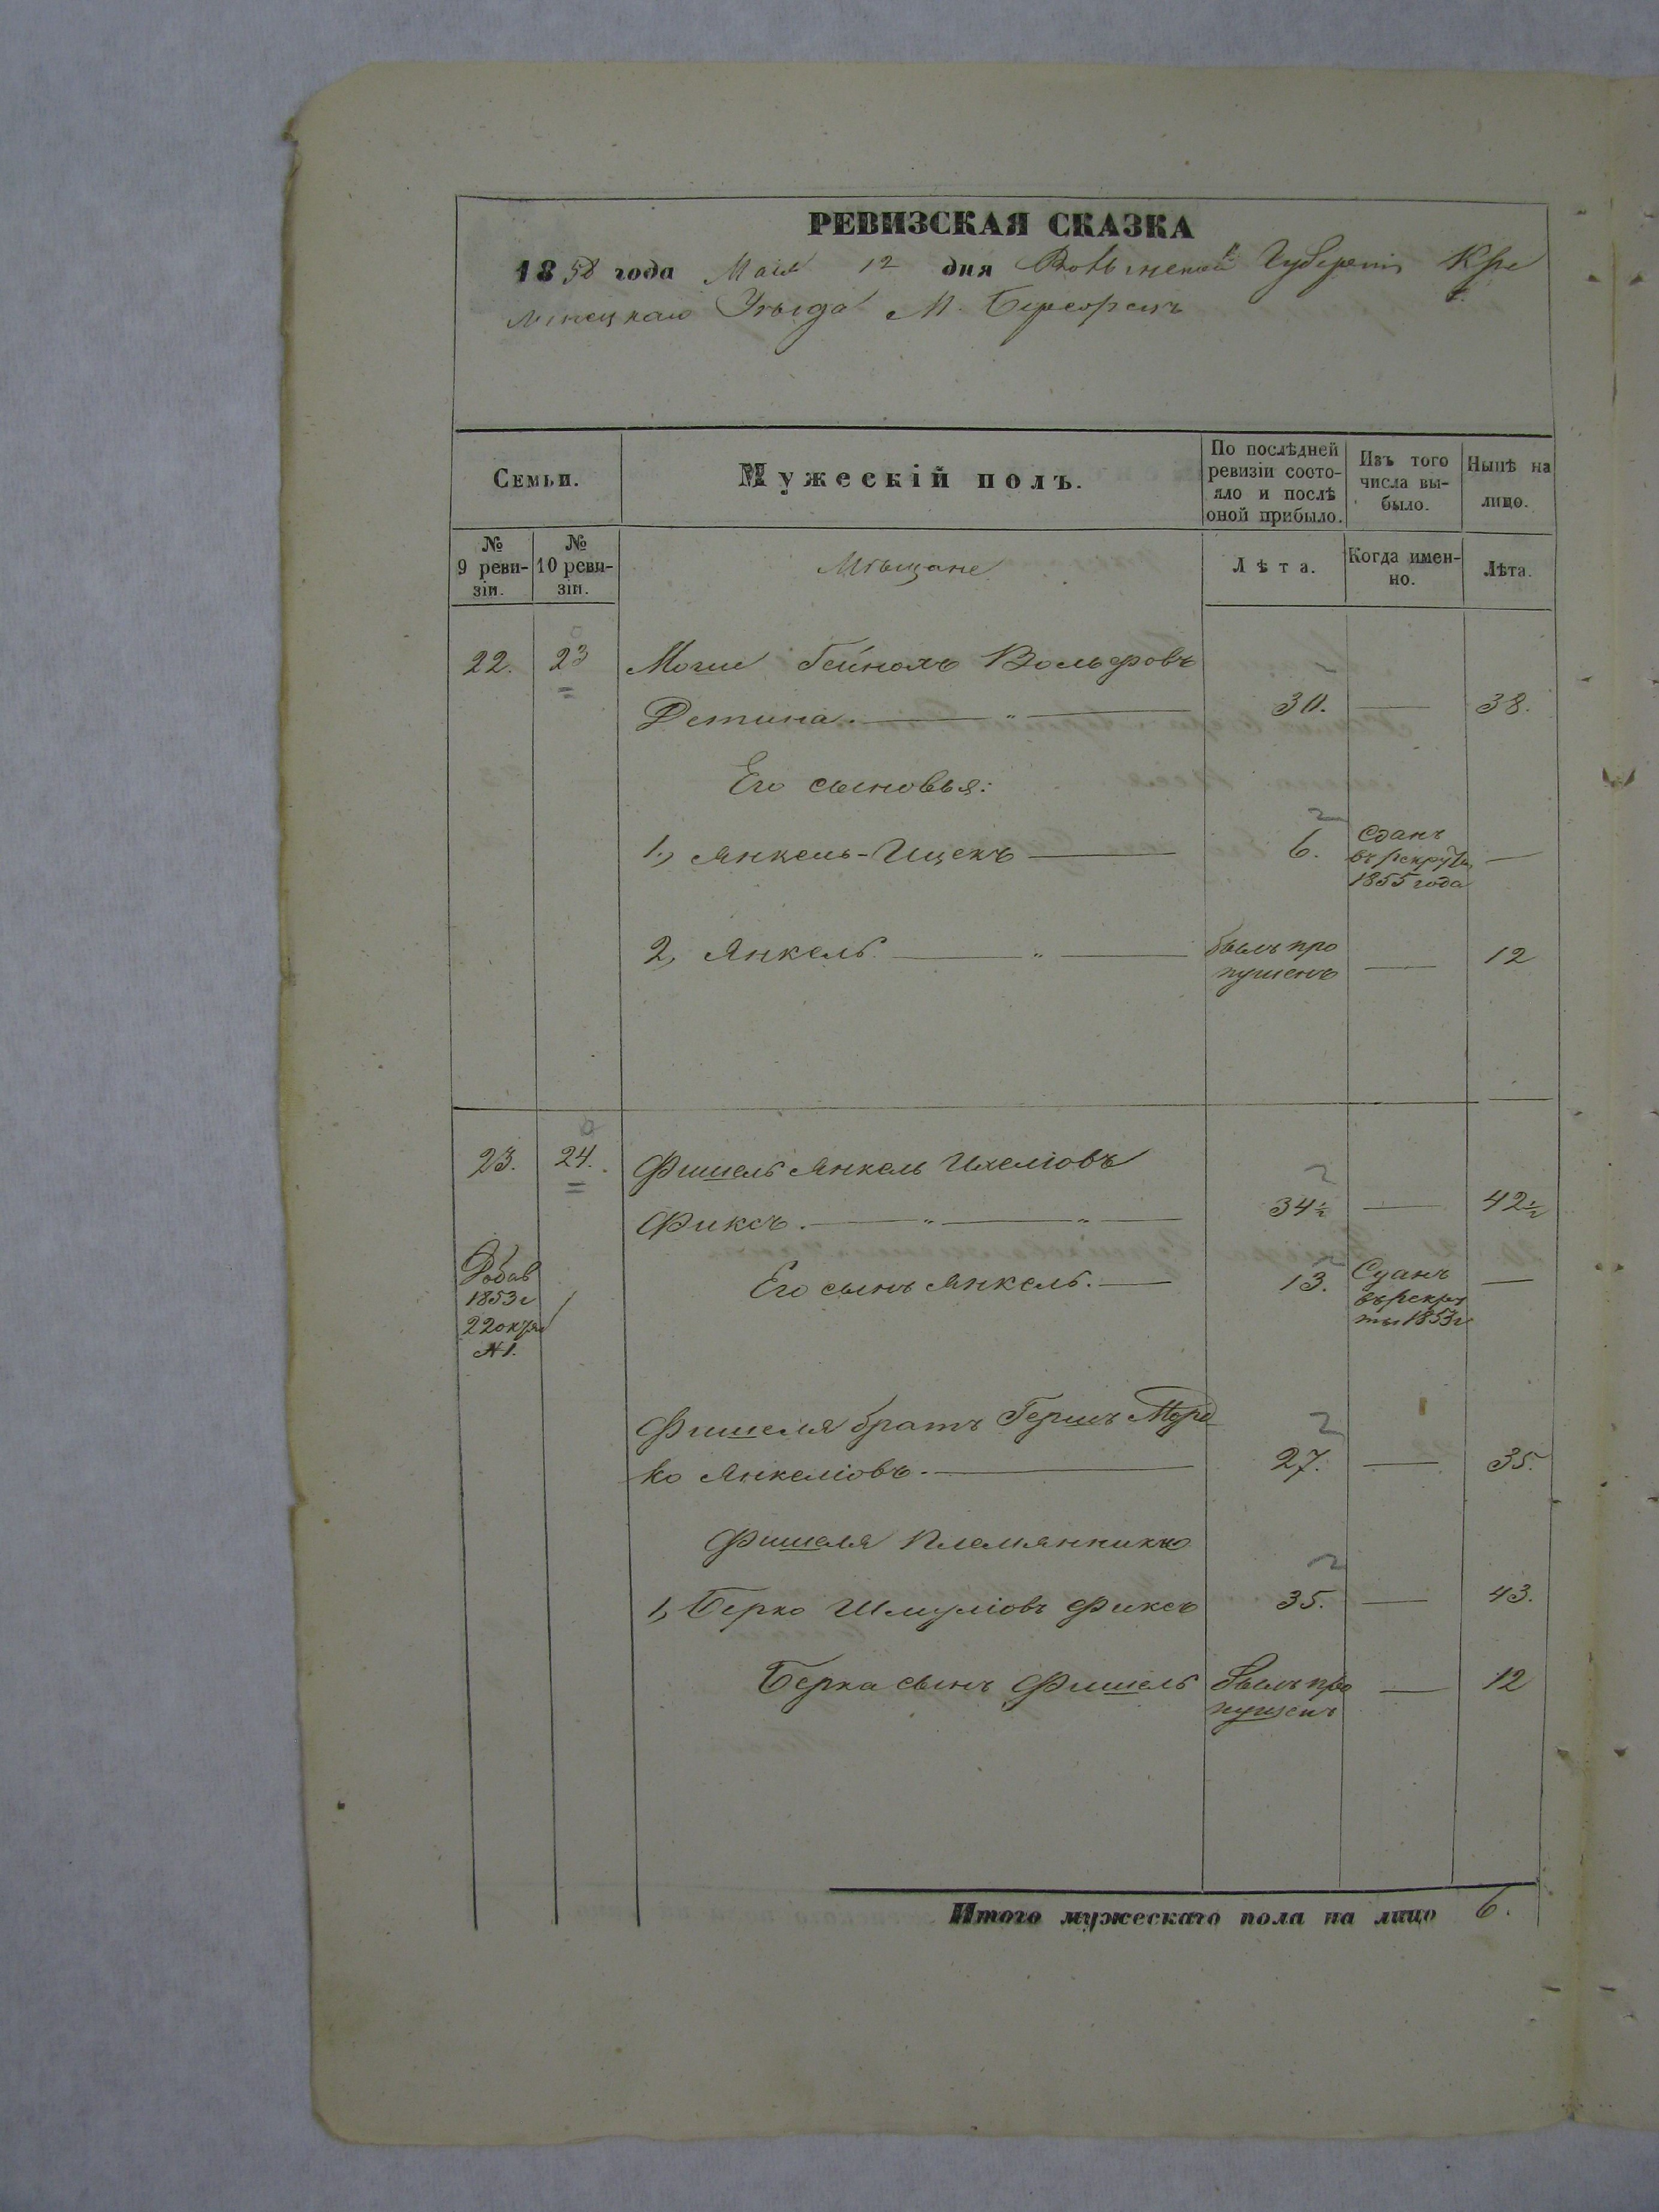 РЕВИЗСКАЯ СКАЗКА
1858 года Маія 12 дня Волынской Губерніи Кре
менецкаго Уѣзда М.
Семьи.
Мужескій полъ.
По послѣдней ревизіи состояло и послѣ оной прибыло.
Изъ того числа выбыло.
Нынѣ на лицо.
№ 9 ревизіи.
№ 10 ревизіи.
Мѣщане
Лѣта.
Когда именно.
Лѣта.
22. 23 Вольфовъ
Детина. 30. — 38.
Его сыновья:
1, Янкель-Ицекъ — 6. Сданъ въ рекруты 1855 года —
2, Янкель. — былъ пропущенъ — 12
23. 24. Фишель Янкель
Фиксъ. — 34½ — 42½
Добав 1853 г 22 окт № 1.
Его сынъ Янкель. — 13. Сданъ въ рекруты 1853 г —
Фишеля братъ Гершъ Морд
ко Янкеліовъ. — 27. — 35.
Фишеля Племянники
1, Берко Шмуліовъ Фиксъ 35. — 43.
Берка сынъ Фишель былъ пропущенъ — 12
Итого мужескаго пола на лицо 6.